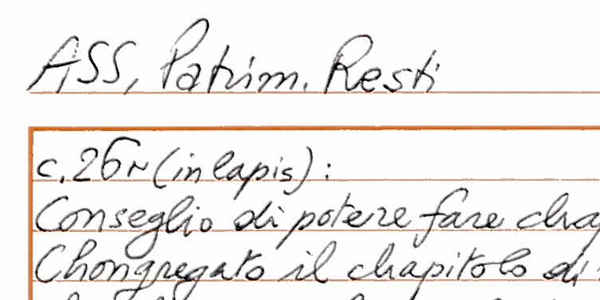 ASS, Patrim. Resti
c. 26r (in lapis):
Conseglio di potere fare
Chongregato il chapitolo di